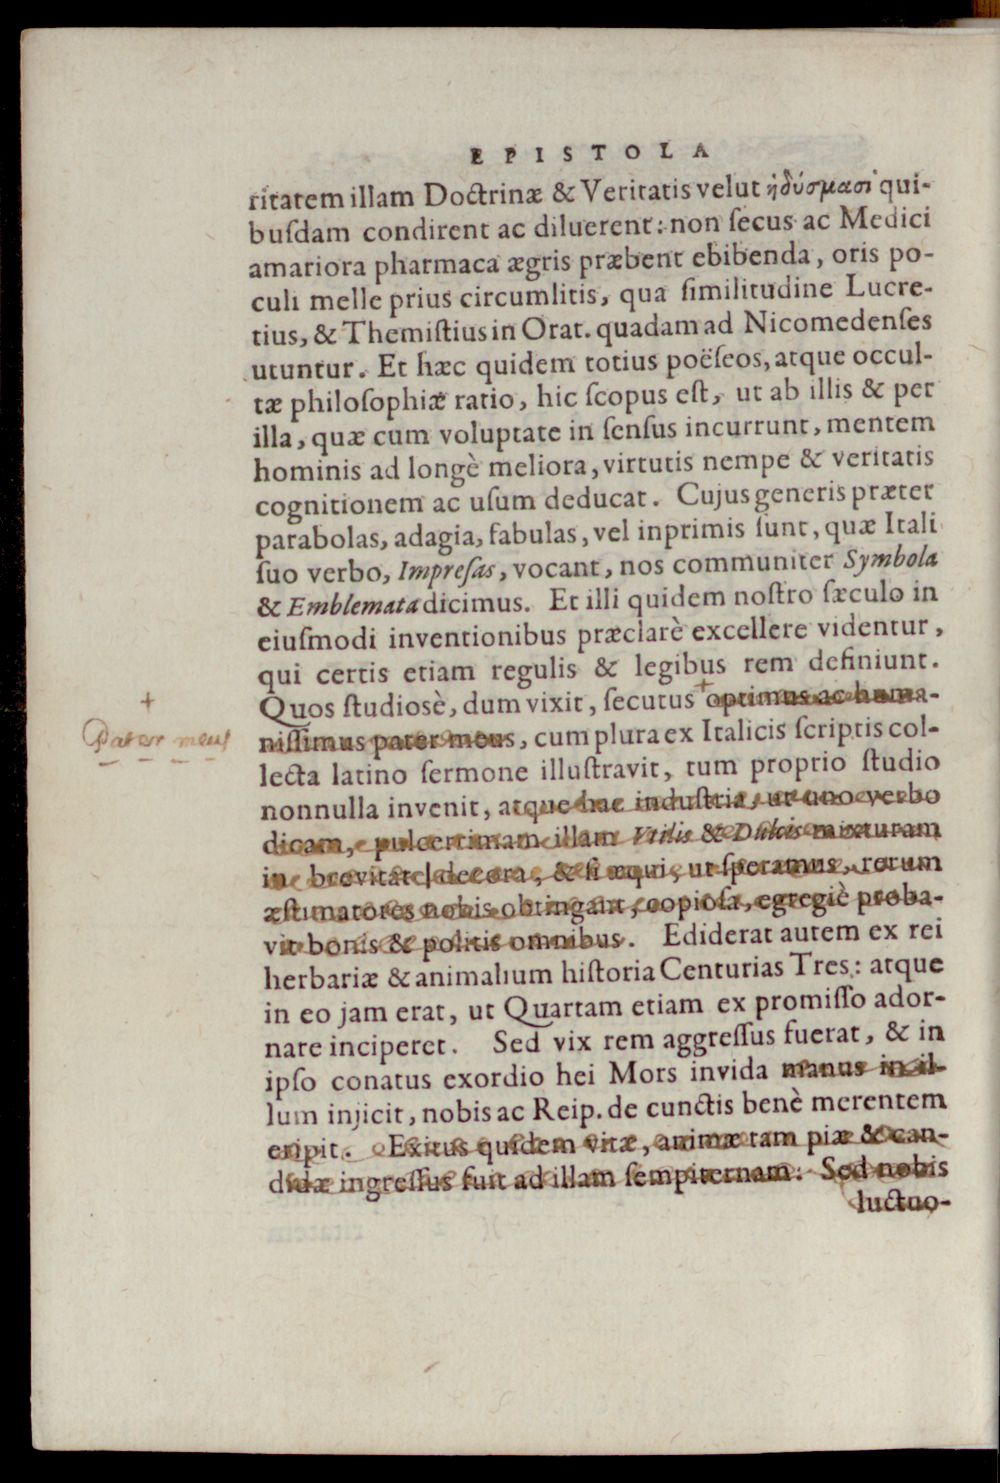 EPISTOLA
ritatem illam Doctrinæ & Veritatis velut ἡδύσμασί qui-
buſdam condirent ac diluerent: non ſecus ac Medici
amariora pharmaca ægris præbent ebibenda, oris po-
culi melle prius circumlitis, qua ſimilitudine Lucre-
tius, & Themiſtius in Orat. quadam ad Nicomedenſes
utuntur. Et hæc quidem totius poëſeos, atque occul-
tæ philoſophiæ ratio, hic ſcopus eſt, ut ab illis & per
illa, quæ cum voluptate in ſenſus incurrunt, mentem
hominis ad longè meliora, virtutis nempe & veritatis
cognitionem ac uſum deducat. Cujus generis præter
parabolas, adagia, fabulas, vel inprimis ſunt, quæ Itali
ſuo verbo, Impreſas, vocant, nos communiter Symbola
& Emblemata dicimus. Et illi quidem noſtro ſæculo in
eiuſmodi inventionibus præclarè excellere videntur,
qui certis etiam regulis & legibus rem definiunt.
+
Quos ſtudiosè, dum vixit, ſecutus + optimus ac huma-
Pater meus
niſſimus pater meus, cum plura ex Italicis ſcriptis col-
lecta latino ſermone illuſtravit, tum proprio ſtudio
nonnulla invenit, atque hac induſtria, ut uno verbo
dicam, pulcerrimam illam Vtilis & Dulcis mixturam
in brevitate decora, & ſi æqui, ut ſperamus, rerum
æſtimatores nobis obtingant, copioſa, egregiè proba-
vit bonis & politis omnibus. Ediderat autem ex rei
herbariæ & animalium hiſtoria Centurias Tres: atque
in eo jam erat, ut Quartam etiam ex promiſſo ador-
nare inciperet. Sed vix rem aggreſſus fuerat, & in
ipſo conatus exordio hei Mors invida manus in il-
lum injicit, nobis ac Reip. de cunctis benè merentem
eripit. Exitus quidem vitæ, animæ tam piæ & can-
didæ ingreſſus fuit ad illam ſempiternam: Sed nobis
luctuo-